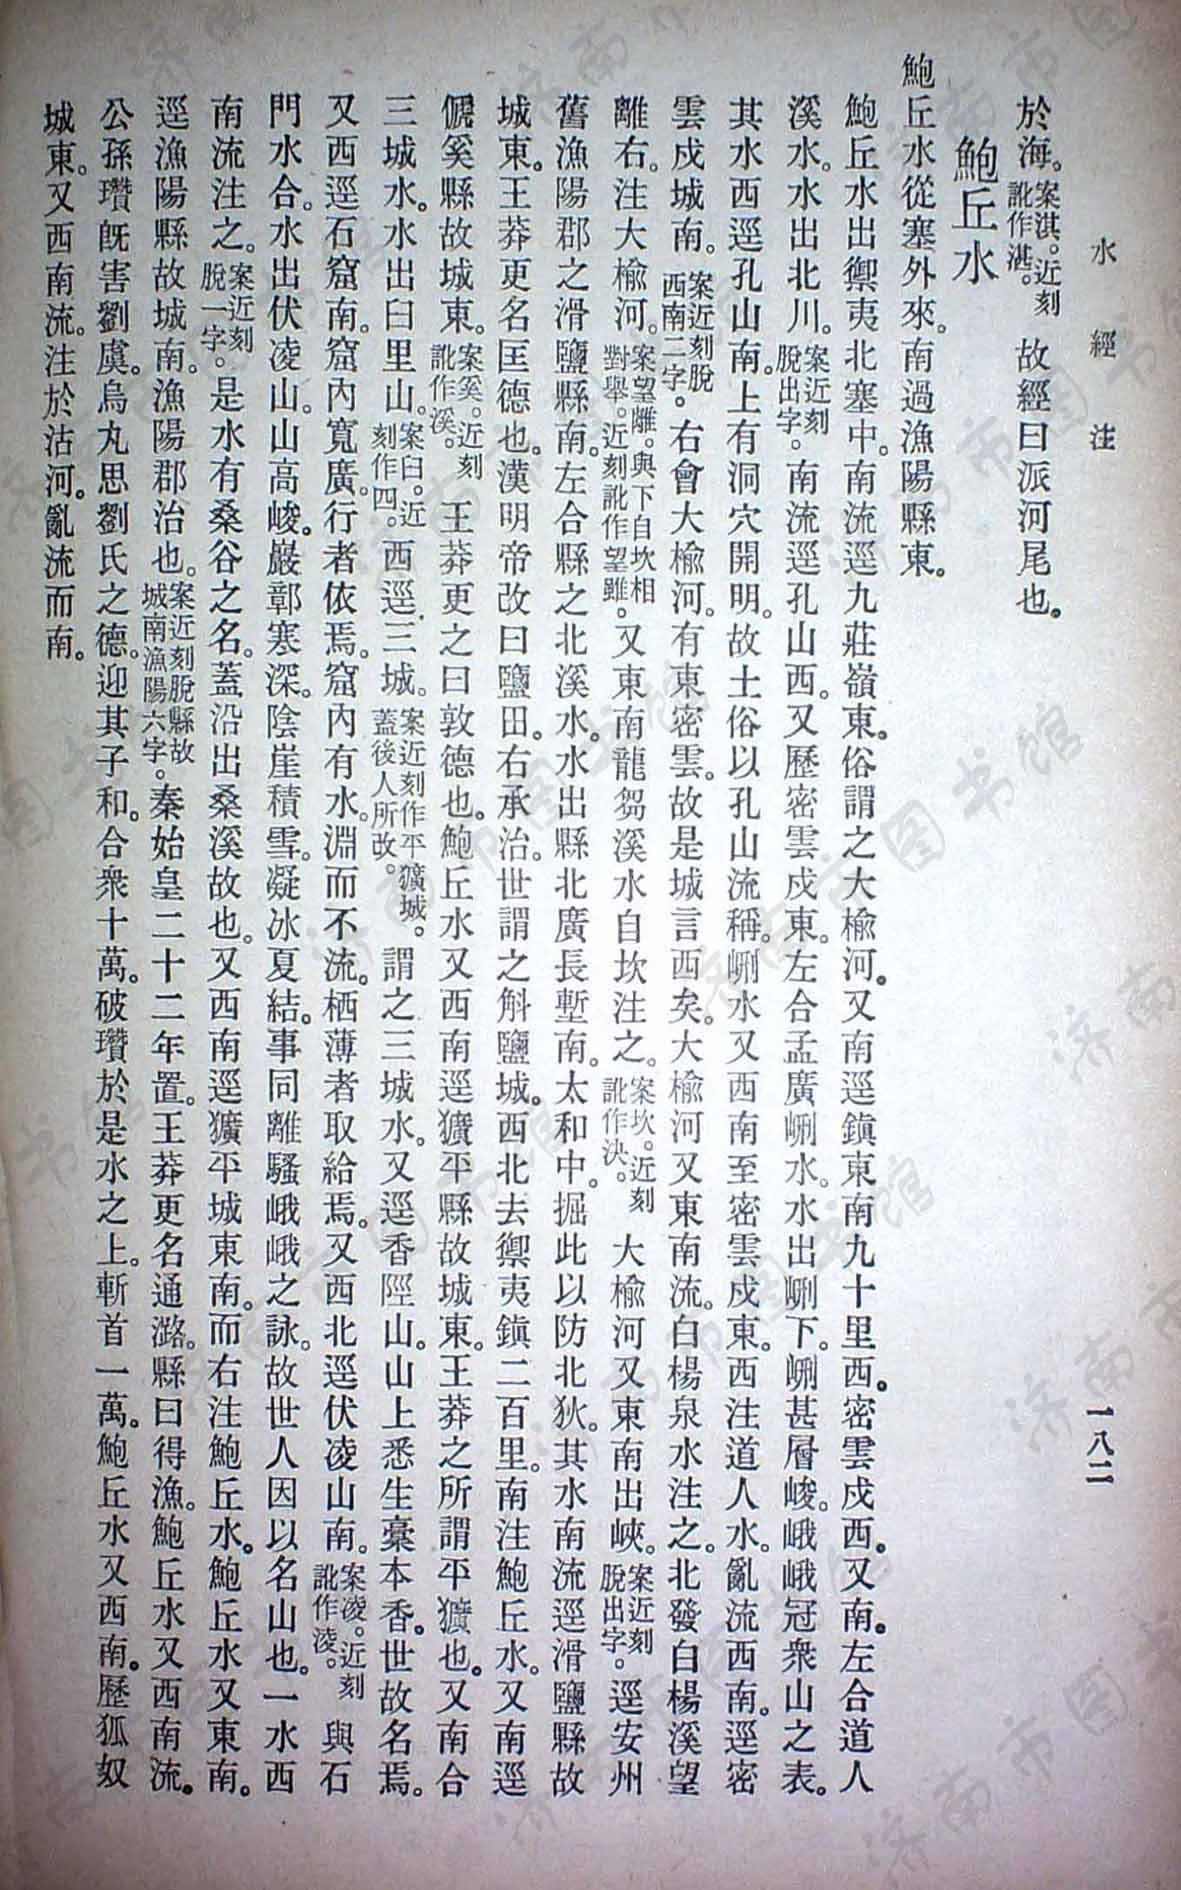 水經注
一八二
於海。案淇。近刻訛作湛。故經曰派河尾也。
鮑丘水
鮑丘水從塞外來。南過漁陽縣東。
鮑丘水出禦夷北塞中。南流逕九莊嶺東。俗謂之大榆河。又南逕鎮東南九十里西。密雲戍西。又南。左合道人
溪水。水出北川。案近刻脫出字。南流逕孔山西。又歷密雲戍東。左合孟廣𡶴水。水出𡶴下。𡶴甚層峻。峨峨冠衆山之表。
其水西逕孔山南。上有洞穴開明。故土俗以孔山流稱。𡶴水又西南至密雲戍東。西注道人水。亂流西南。逕密
雲戍城南。案近刻脫西南二字。右會大榆河。有東密雲。故是城言西矣。大榆河又東南流。白楊泉水注之。北發白楊溪望
離右。注大榆河。案望離。與下自坎相對舉。近刻訛作望雖。又東南龍芻溪水自坎注之。案坎。近刻訛作決。大榆河又東南出峽。案近刻脫出字。逕安州
舊漁陽郡之滑鹽縣南。左合縣之北溪水。水出縣北廣長塹南。太和中。掘此以防北狄。其水南流逕滑鹽縣故
城東。王莽更名匡德也。漢明帝改曰鹽田。右承治。世謂之斛鹽城。西北去禦夷鎮二百里。南注鮑丘水。又南逕
傂奚縣故城東。案奚。近刻訛作溪。王莽更之曰敦德也。鮑丘水又西南逕獷平縣故城東。王莽之所謂平獷也。又南合
三城水。水出臼里山。案臼。近刻作四。西逕三城。案近刻作平獷城。蓋後人所改。謂之三城水。又逕香陘山。山上悉生藁本香。世故名焉。
又西逕石窟南。窟內寬廣。行者依焉。窟內有水。淵而不流。栖薄者取給焉。又西北逕伏凌山南。案凌。近刻訛作淩。與石
門水合。水出伏凌山。山高峻。巖鄣寒深。陰崖積雪。凝冰夏結。事同離騷峨峨之詠。故世人因以名山也。一水西
南流注之。案近刻脫一字。是水有桑谷之名。蓋沿出桑溪故也。又西南逕獷平城東南。而右注鮑丘水。鮑丘水又東南。
逕漁陽縣故城南。漁陽郡治也。案近刻脫縣故城南漁陽六字。秦始皇二十二年置。王莽更名通潞。縣曰得漁。鮑丘水又西南流。
公孫瓚旣害劉虞。烏丸思劉氏之德。迎其子和。合衆十萬。破瓚於是水之上。斬首一萬。鮑丘水又西南。歷狐奴
城東。又西南流。注於沽河。亂流而南。